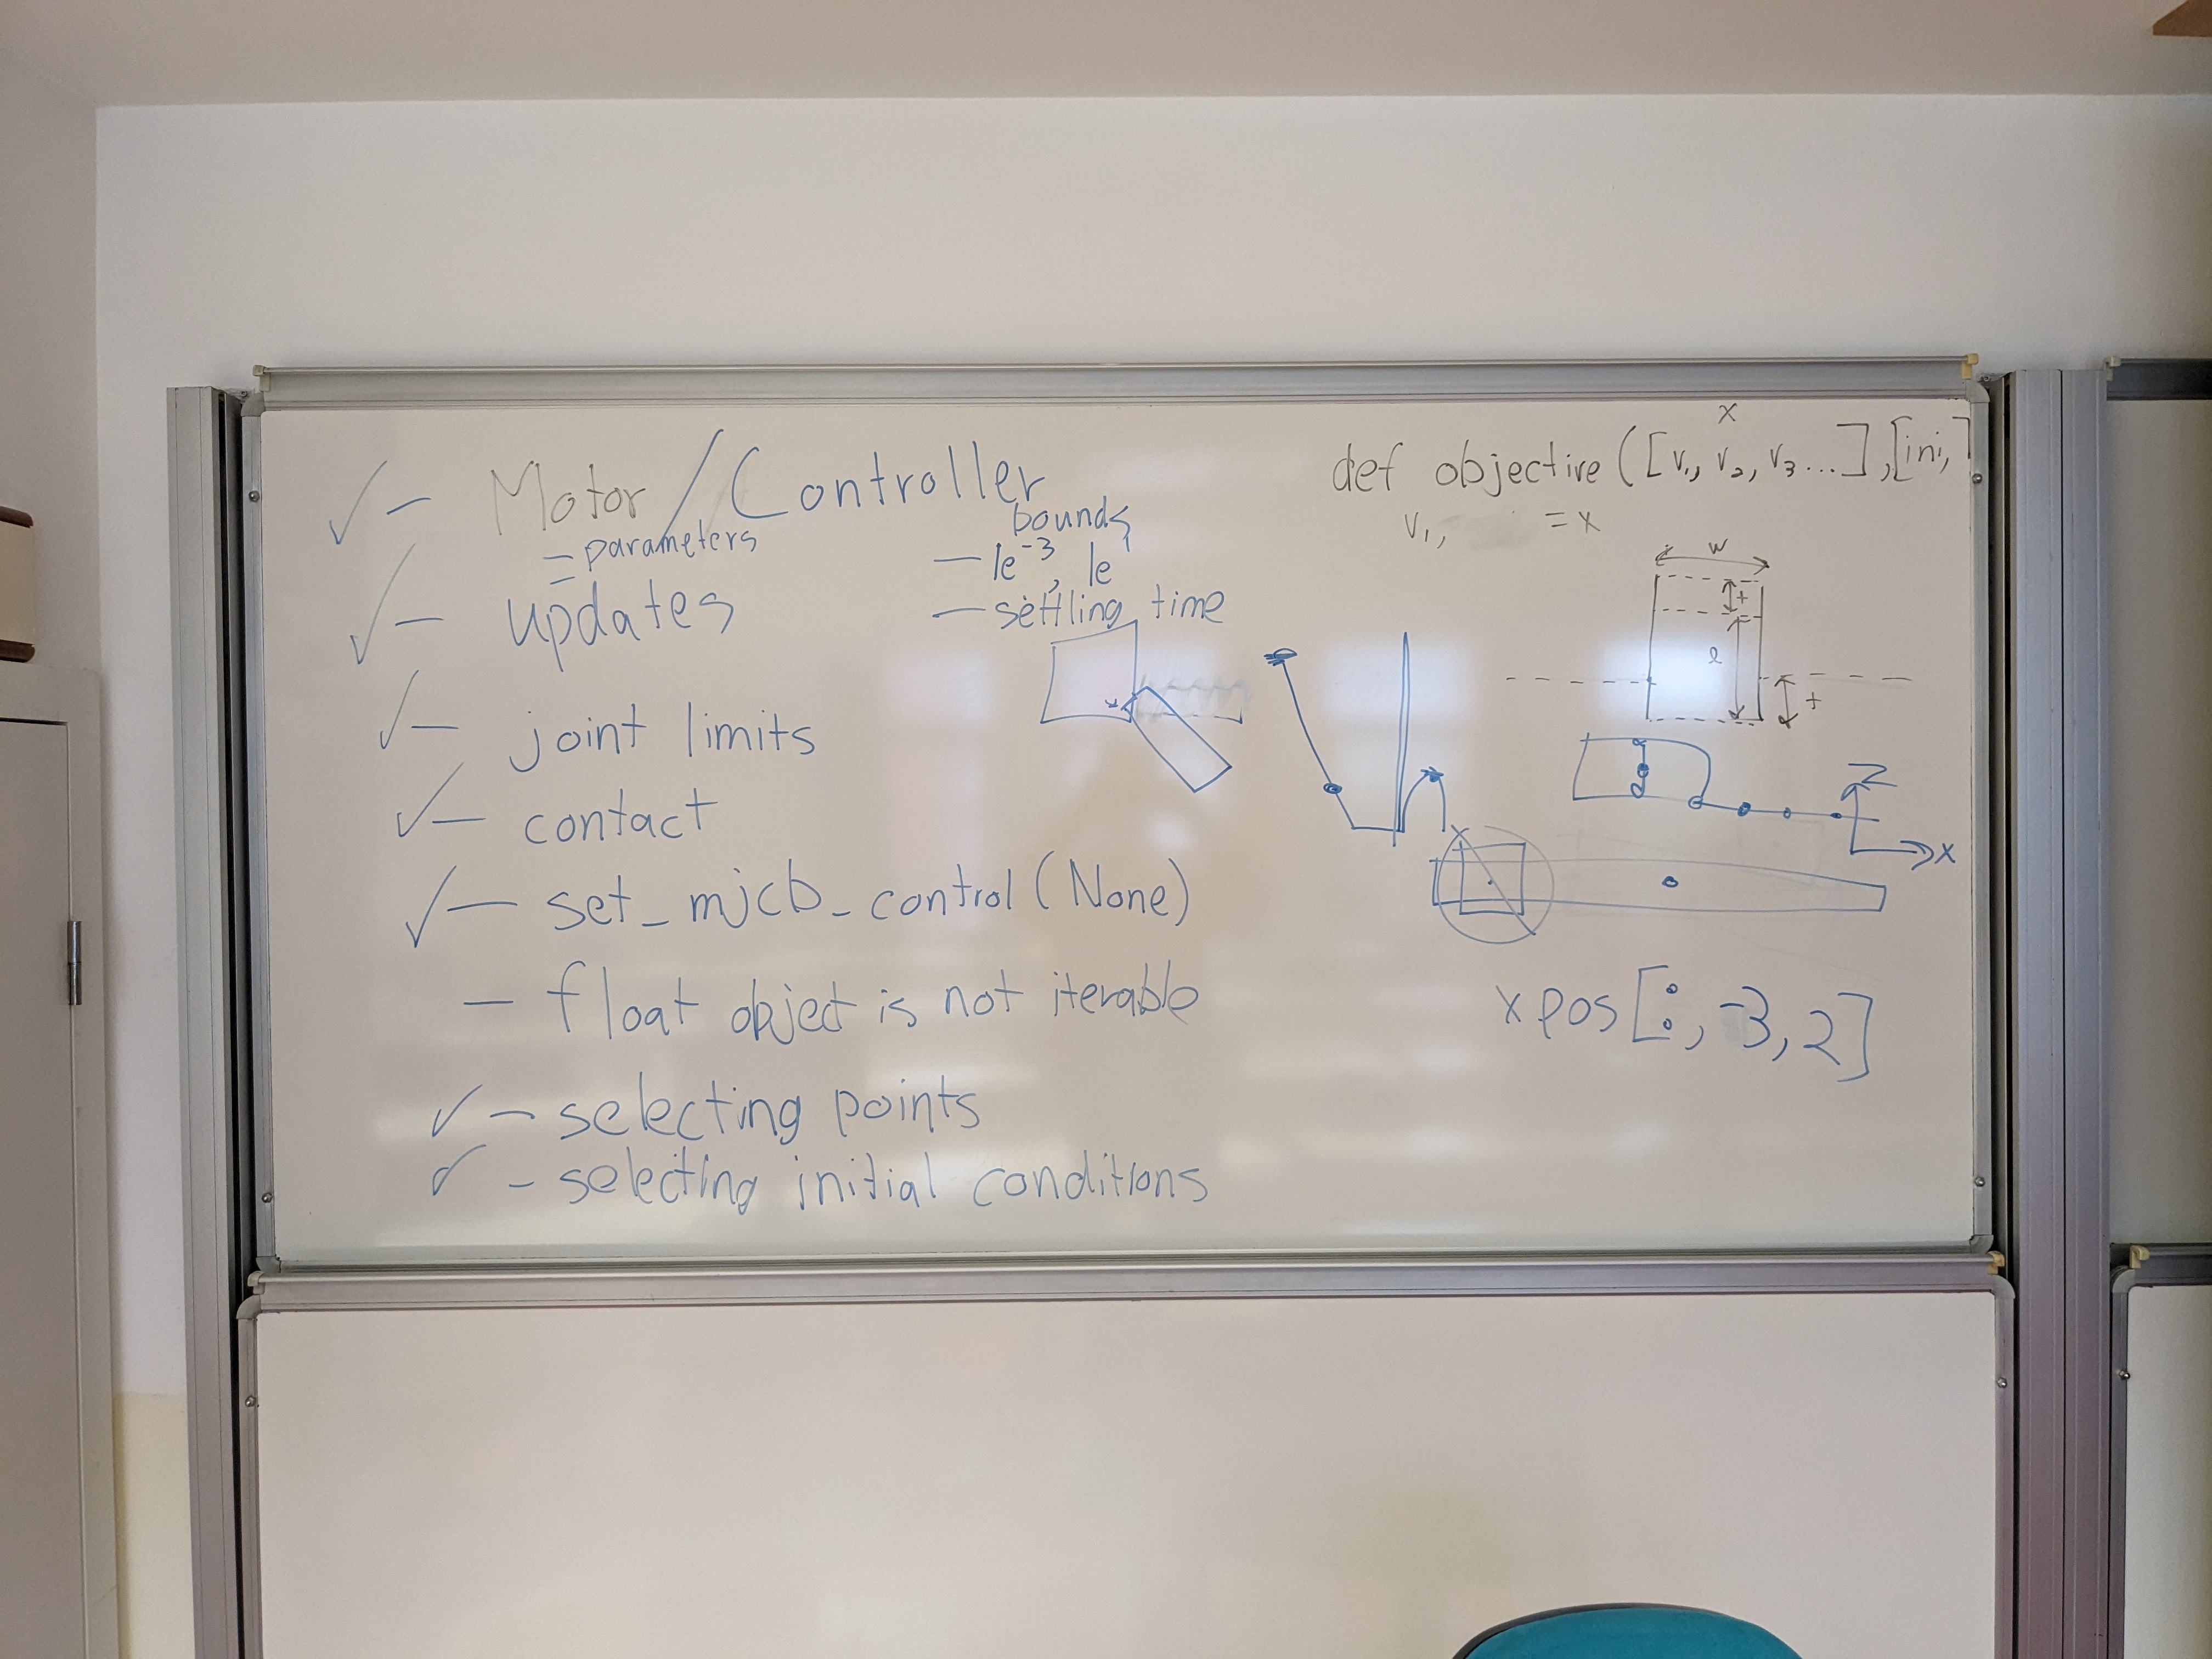 ✓ - Motor / Controller
= parameters
bounds
- 1e⁻³, 1e¹
✓ - updates
- settling time
✓ - joint limits
✓ - contact
✓ - set_mjcb_control(None)
- float object is not iterable
✓ - selecting points
✓ - selecting initial conditions
x
def objective([v₁, v₂, v₃...],[ini,]
v₁, = x
w
t
l
t
Z
x
xpos[:,-3,2]